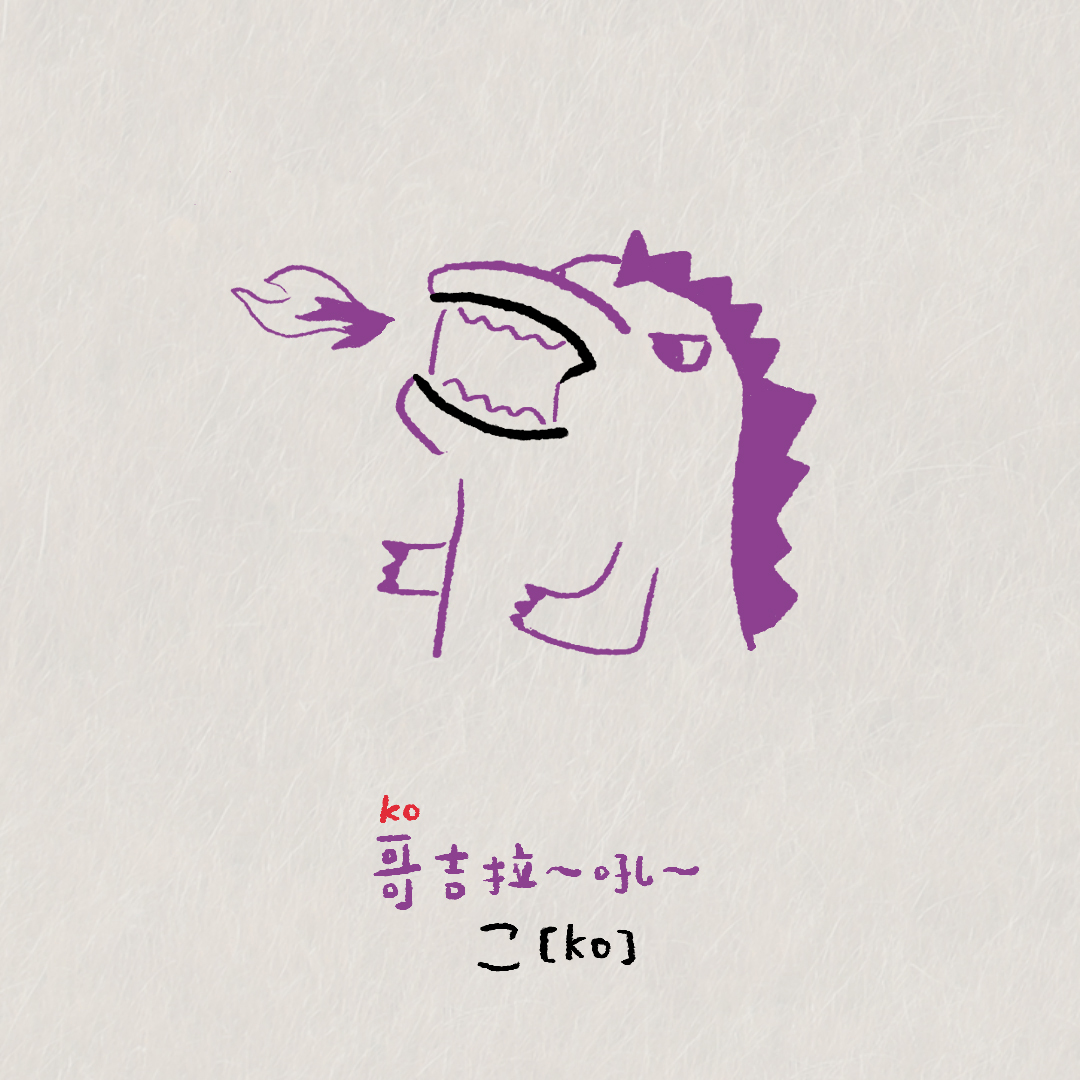 ko
哥吉拉～吼～
こ [ko]